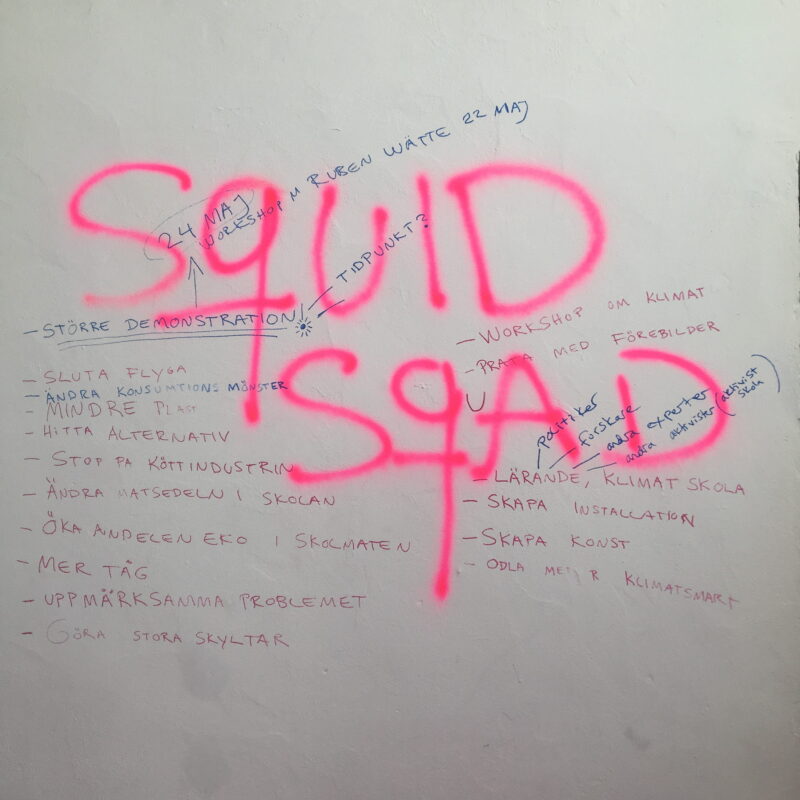 SQUID
SQAD
24 MAJ
WORKSHOP M RUBEN WÄTTE 22 MAJ
TIDPUNKT?
- STÖRRE DEMONSTRATION!
- SLUTA FLYGA
- ÄNDRA KONSUMTIONS MÖNSTER
- MINDRE PLAST
- HITTA ALTERNATIV
- STOP PÅ KÖTTINDUSTRIN
- ÄNDRA MATSEDELN I SKOLAN
- ÖKA ANDELEN EKO I SKOLMATEN
- MER TÅG
- UPPMÄRKSAMMA PROBLEMET
- GÖRA STORA SKYLTAR
- WORKSHOP OM KLIMAT
- PRATA MED FÖREBILDER
U
politiker
forskare
andra experter
andra aktivister (aktivist skola)
- LÄRANDE, KLIMAT SKOLA
- SKAPA INSTALLATION
- SKAPA KONST
- ODLA KLIMATSMART